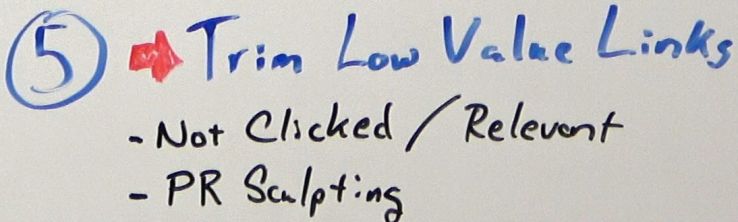 5 → Trim Low Value Links
- Not Clicked / Relevant
- PR Sculpting